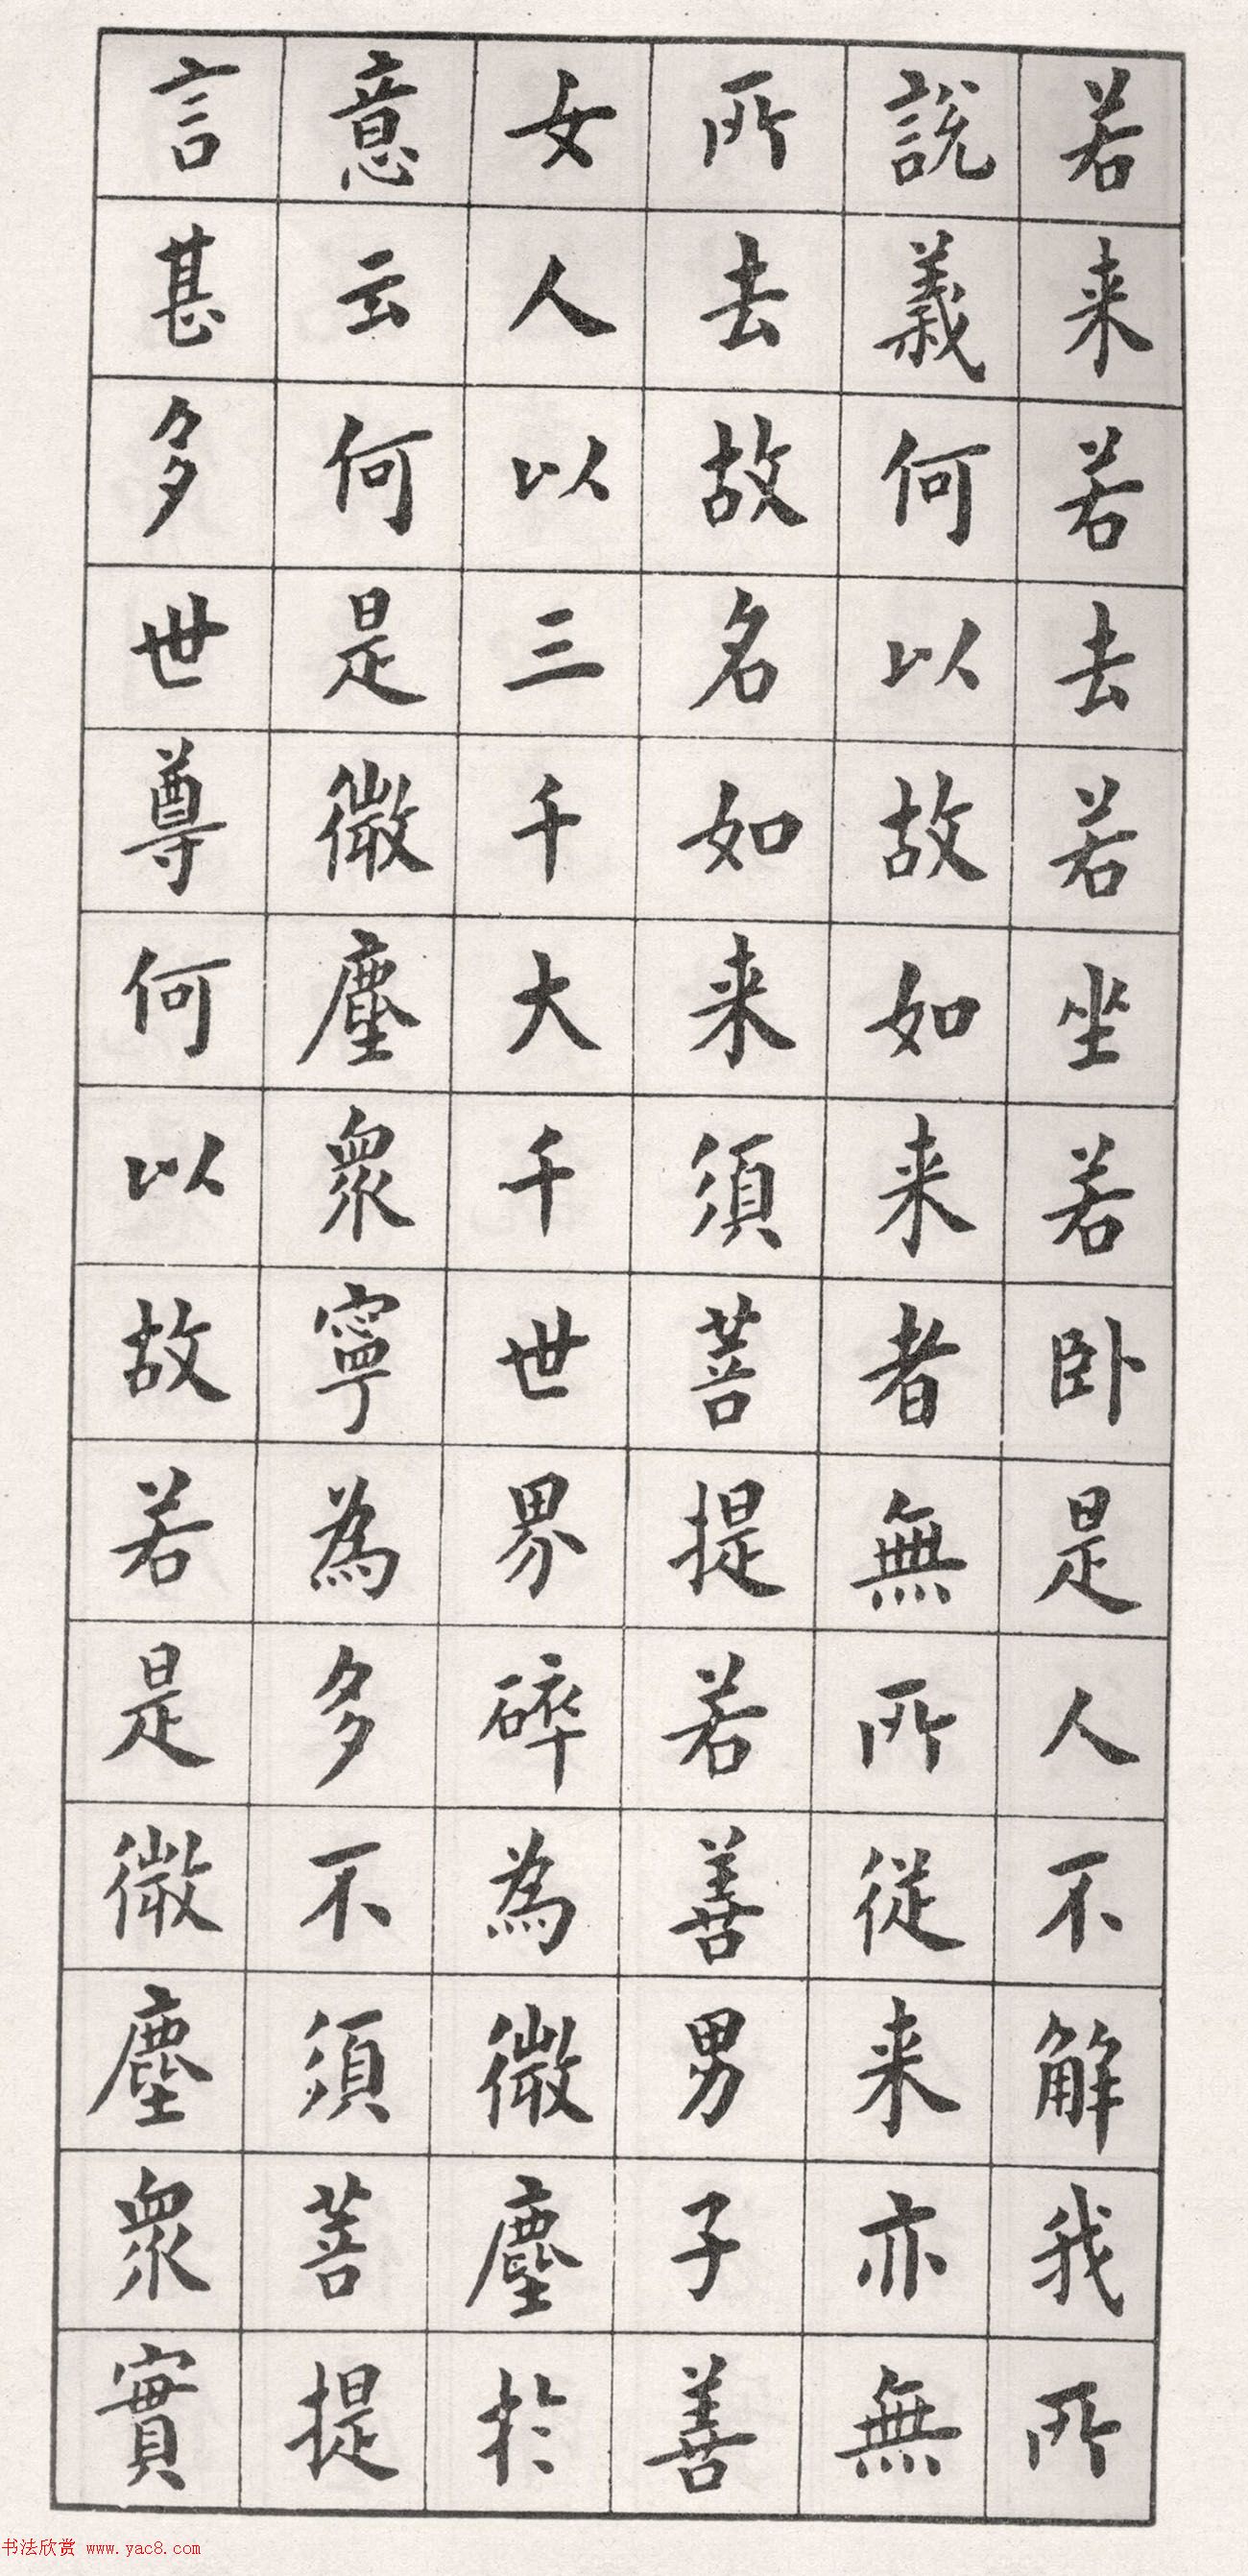 若来若去若坐若卧是人不解我所
說義何以故如来者無所從来亦無
所去故名如来須菩提若善男子善
女人以三千大千世界碎為微塵於
意云何是微塵衆寧為多不須菩提
言甚多世尊何以故若是微塵衆實
书法欣赏 www.yac8.com